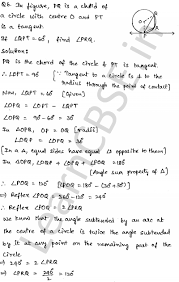 Q6. In figure, PQ is a chord of
a circle with centre O and PT is
a tangent.
If ∠QPT = 60°, find ∠PRQ.
Solution:
PQ is the chord of the circle & PT is tangent.
∴ ∠OPT = 90° [∵ Tangent to a circle is ⊥ to the
radius through the point of contact]
Now, ∠QPT = 60° [Given]
∠OPQ = ∠OPT - ∠QPT
∠OPQ = 90 - 60 = 30°
In ΔOPQ, OP = OQ [radii]
∠OQP = ∠OPQ = 30°
[In a Δ, equal sides have equal ∠s opposite to them]
In ΔOPQ, ∠OQP + ∠OPQ + ∠POQ = 180°
(Angle sum property of Δ)
∴ ∠POQ = 120° [∠POQ = 180° - (30° + 30°)]
⇒ Reflex ∠POQ = 360° - 120° = 240°
∴ Reflex ∠POQ = 2 ∠PRQ
We know that the angle subtended by an arc at
the centre of a circle is twice the angle subtended
by it at any point on the remaining part of the
Circle
⇒ 240° = 2 ∠PRQ
⇒ ∠PRQ = 240°/2 = 120°